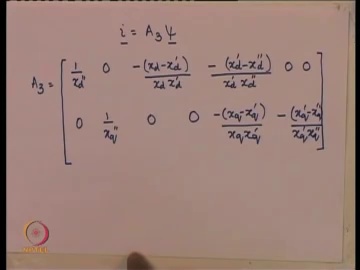 i = A₃ Ψ
A₃ = [ 1/x_d'' 0 -(x_d-x_d')/(x_d x_d') -(x_d'-x_d'')/(x_d' x_d'') 0 0
0 1/x_q'' 0 0 -(x_q-x_q')/(x_q x_q') -(x_q'-x_q'')/(x_q' x_q'') ]
NPTEL